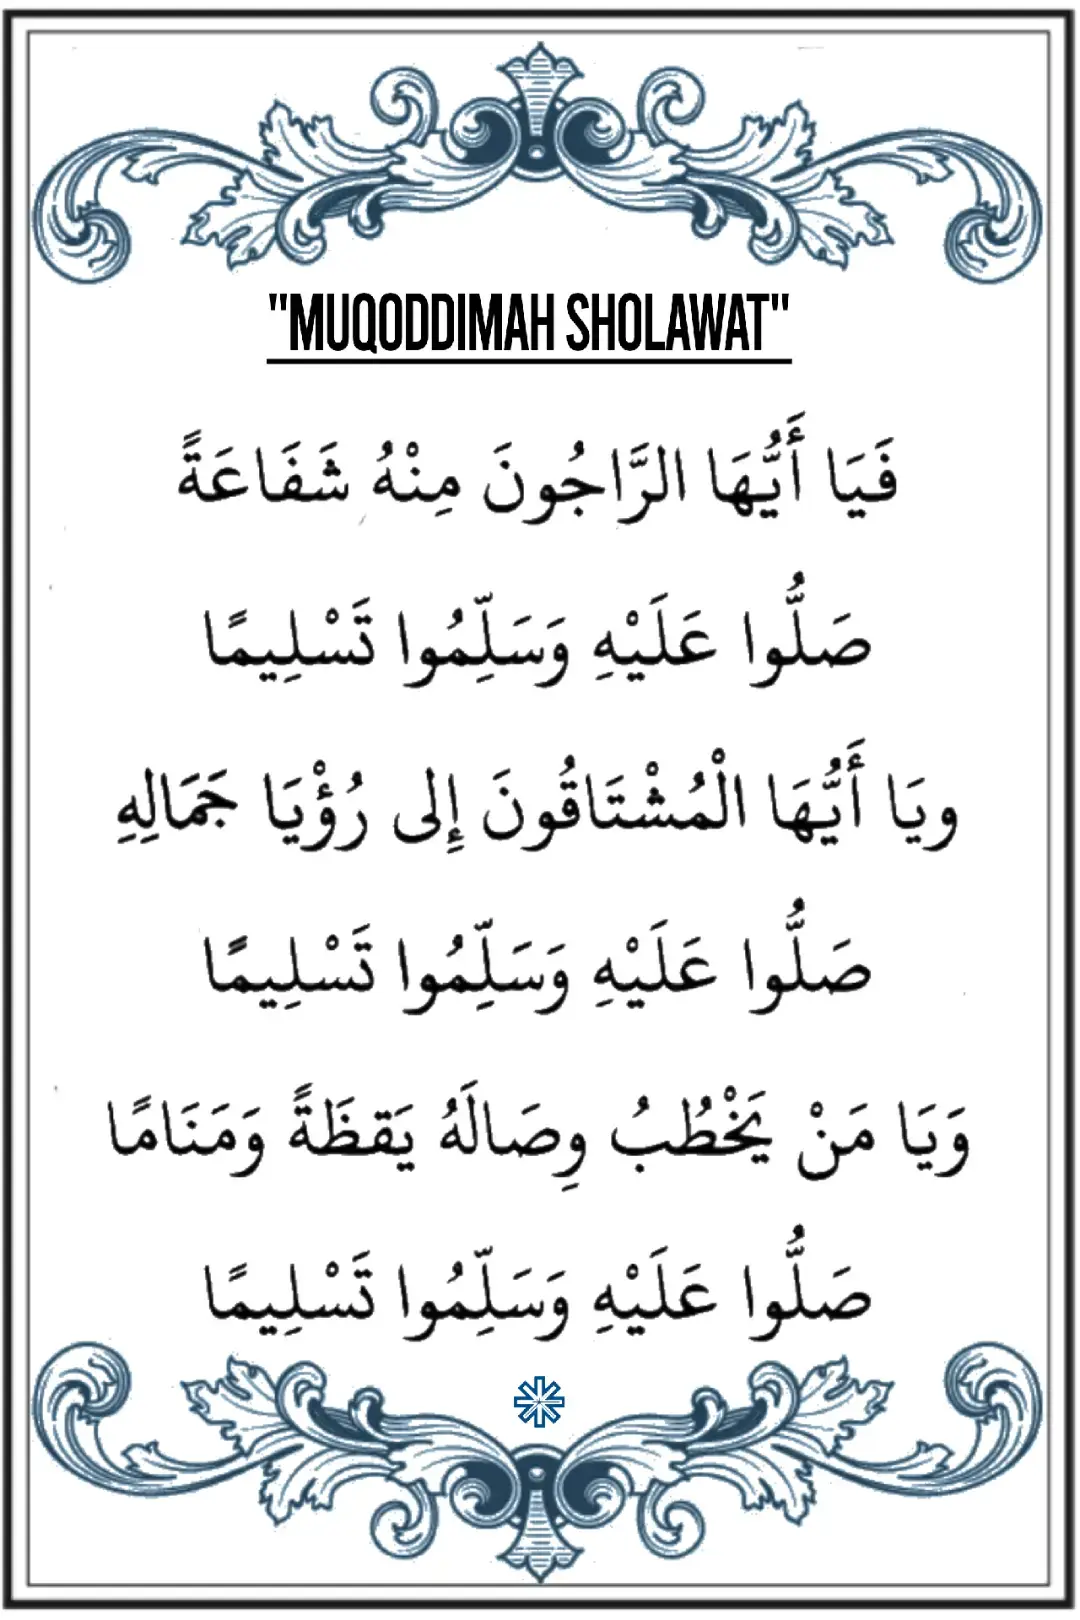 "MUQODDIMAH SHOLAWAT"
فَيَا أَيُّهَا الرَّاجُونَ مِنْهُ شَفَاعَةً
صَلُّوا عَلَيْهِ وَسَلِّمُوا تَسْلِيمًا
ويَا أَيُّهَا الْمُشْتَاقُونَ إِلى رُؤْيَا جَمَالِهِ
صَلُّوا عَلَيْهِ وَسَلِّمُوا تَسْلِيمًا
وَيَا مَنْ يَخْطُبُ وِصَالَهُ يَقظَةً وَمَنَامًا
صَلُّوا عَلَيْهِ وَسَلِّمُوا تَسْلِيمًا